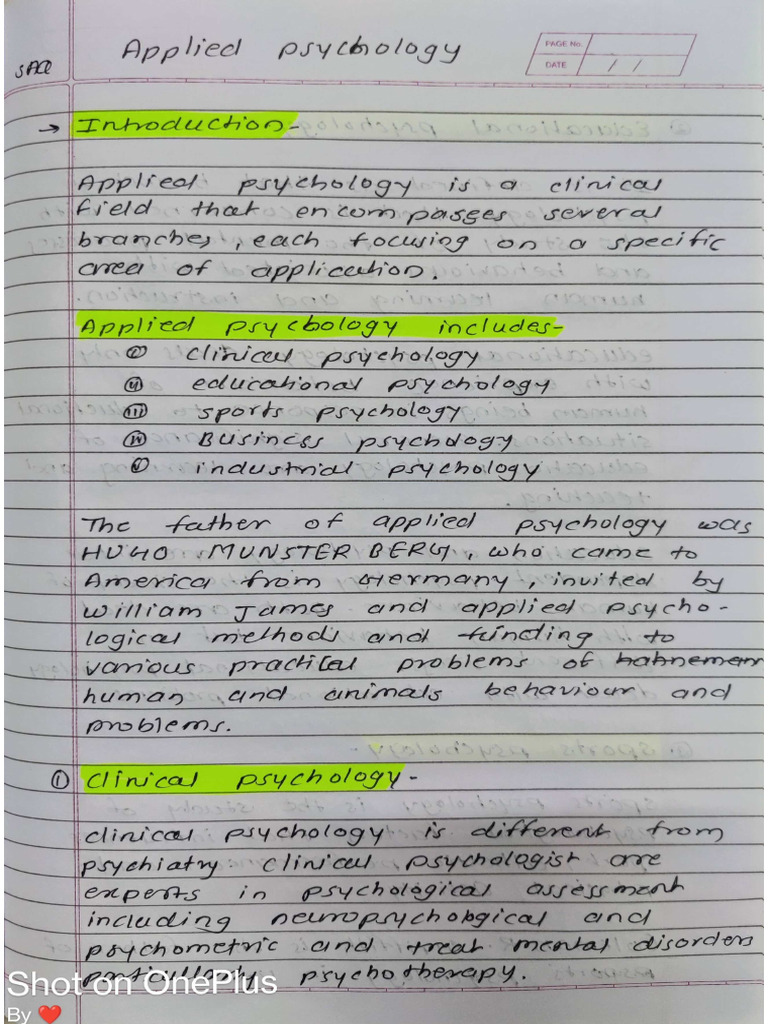 Applied psychology
PAGE No.
DATE / /
→ Introduction-
Applied psychology is a clinical
field that encompasses several
branches, each focusing on a specific
area of application.
Applied psychology includes-
(i) clinical psychology
(ii) educational psychology
(iii) sports psychology
(iv) Business psychology
(v) industrial psychology
The father of applied psychology was
HUGO MUNSTER BERG, who came to
America from Germany, invited by
William James and applied psycho-
logical methods and finding to
various practical problems of
human and animals behaviour and
problems.
① clinical psychology-
clinical psychology is different from
psychiatry. clinical psychologist are
experts in psychological assessment
including neuropsychological and
psychometric and treat mental disorders
particularly psychotherapy.
Shot on OnePlus
By ❤️